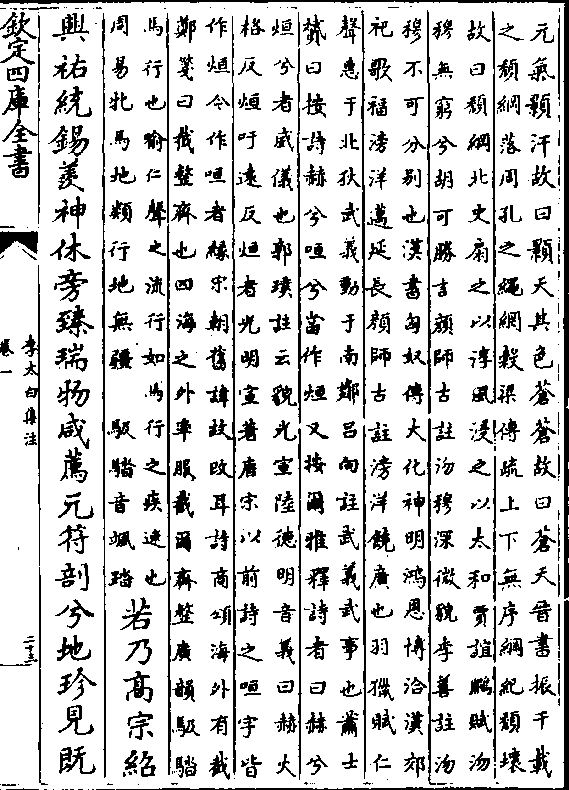 元氣顥汗故曰顥天其色蒼蒼故曰蒼天晉書振千載
之頽綱落周孔之繩網穀梁傳疏上下無序綱紀頽壊
故曰頽綱北史扇之以淳風浸之以太和賈誼鵩賦沕
穆無窮兮胡可勝言顔師古註沕穆深微貌李善註沕
穆不可分别也漢書匈奴傳大化神明鴻恩博洽漢郊
祀歌福滂洋邁延長顔師古註滂洋饒廣也羽獵賦仁
聲惠于北狄武義動于南鄰吕向註武義武事也蕭士
贇曰按詩赫兮咺兮當作烜又按爾雅釋詩者曰赫兮
烜兮者威儀也郭璞註云貌光宣陸德明音義曰赫火
格反烜吁遠反烜者光明宣著唐宋以前詩之咺字皆
作烜今作咺者縁宋朝舊諱故改耳詩商頌海外有截
鄭箋曰截整齊也四海之外率服截爾齊整廣韻馺䭿
馬行也喻仁聲之流行如馬行之疾速也
周易牝馬地類行地無疆　馺䭿音颯踏
若乃高宗紹
興祐統錫羨神休旁臻瑞物咸薦元符剖兮地珍見既
欽定四庫全書
李太白集注
卷一
二十三